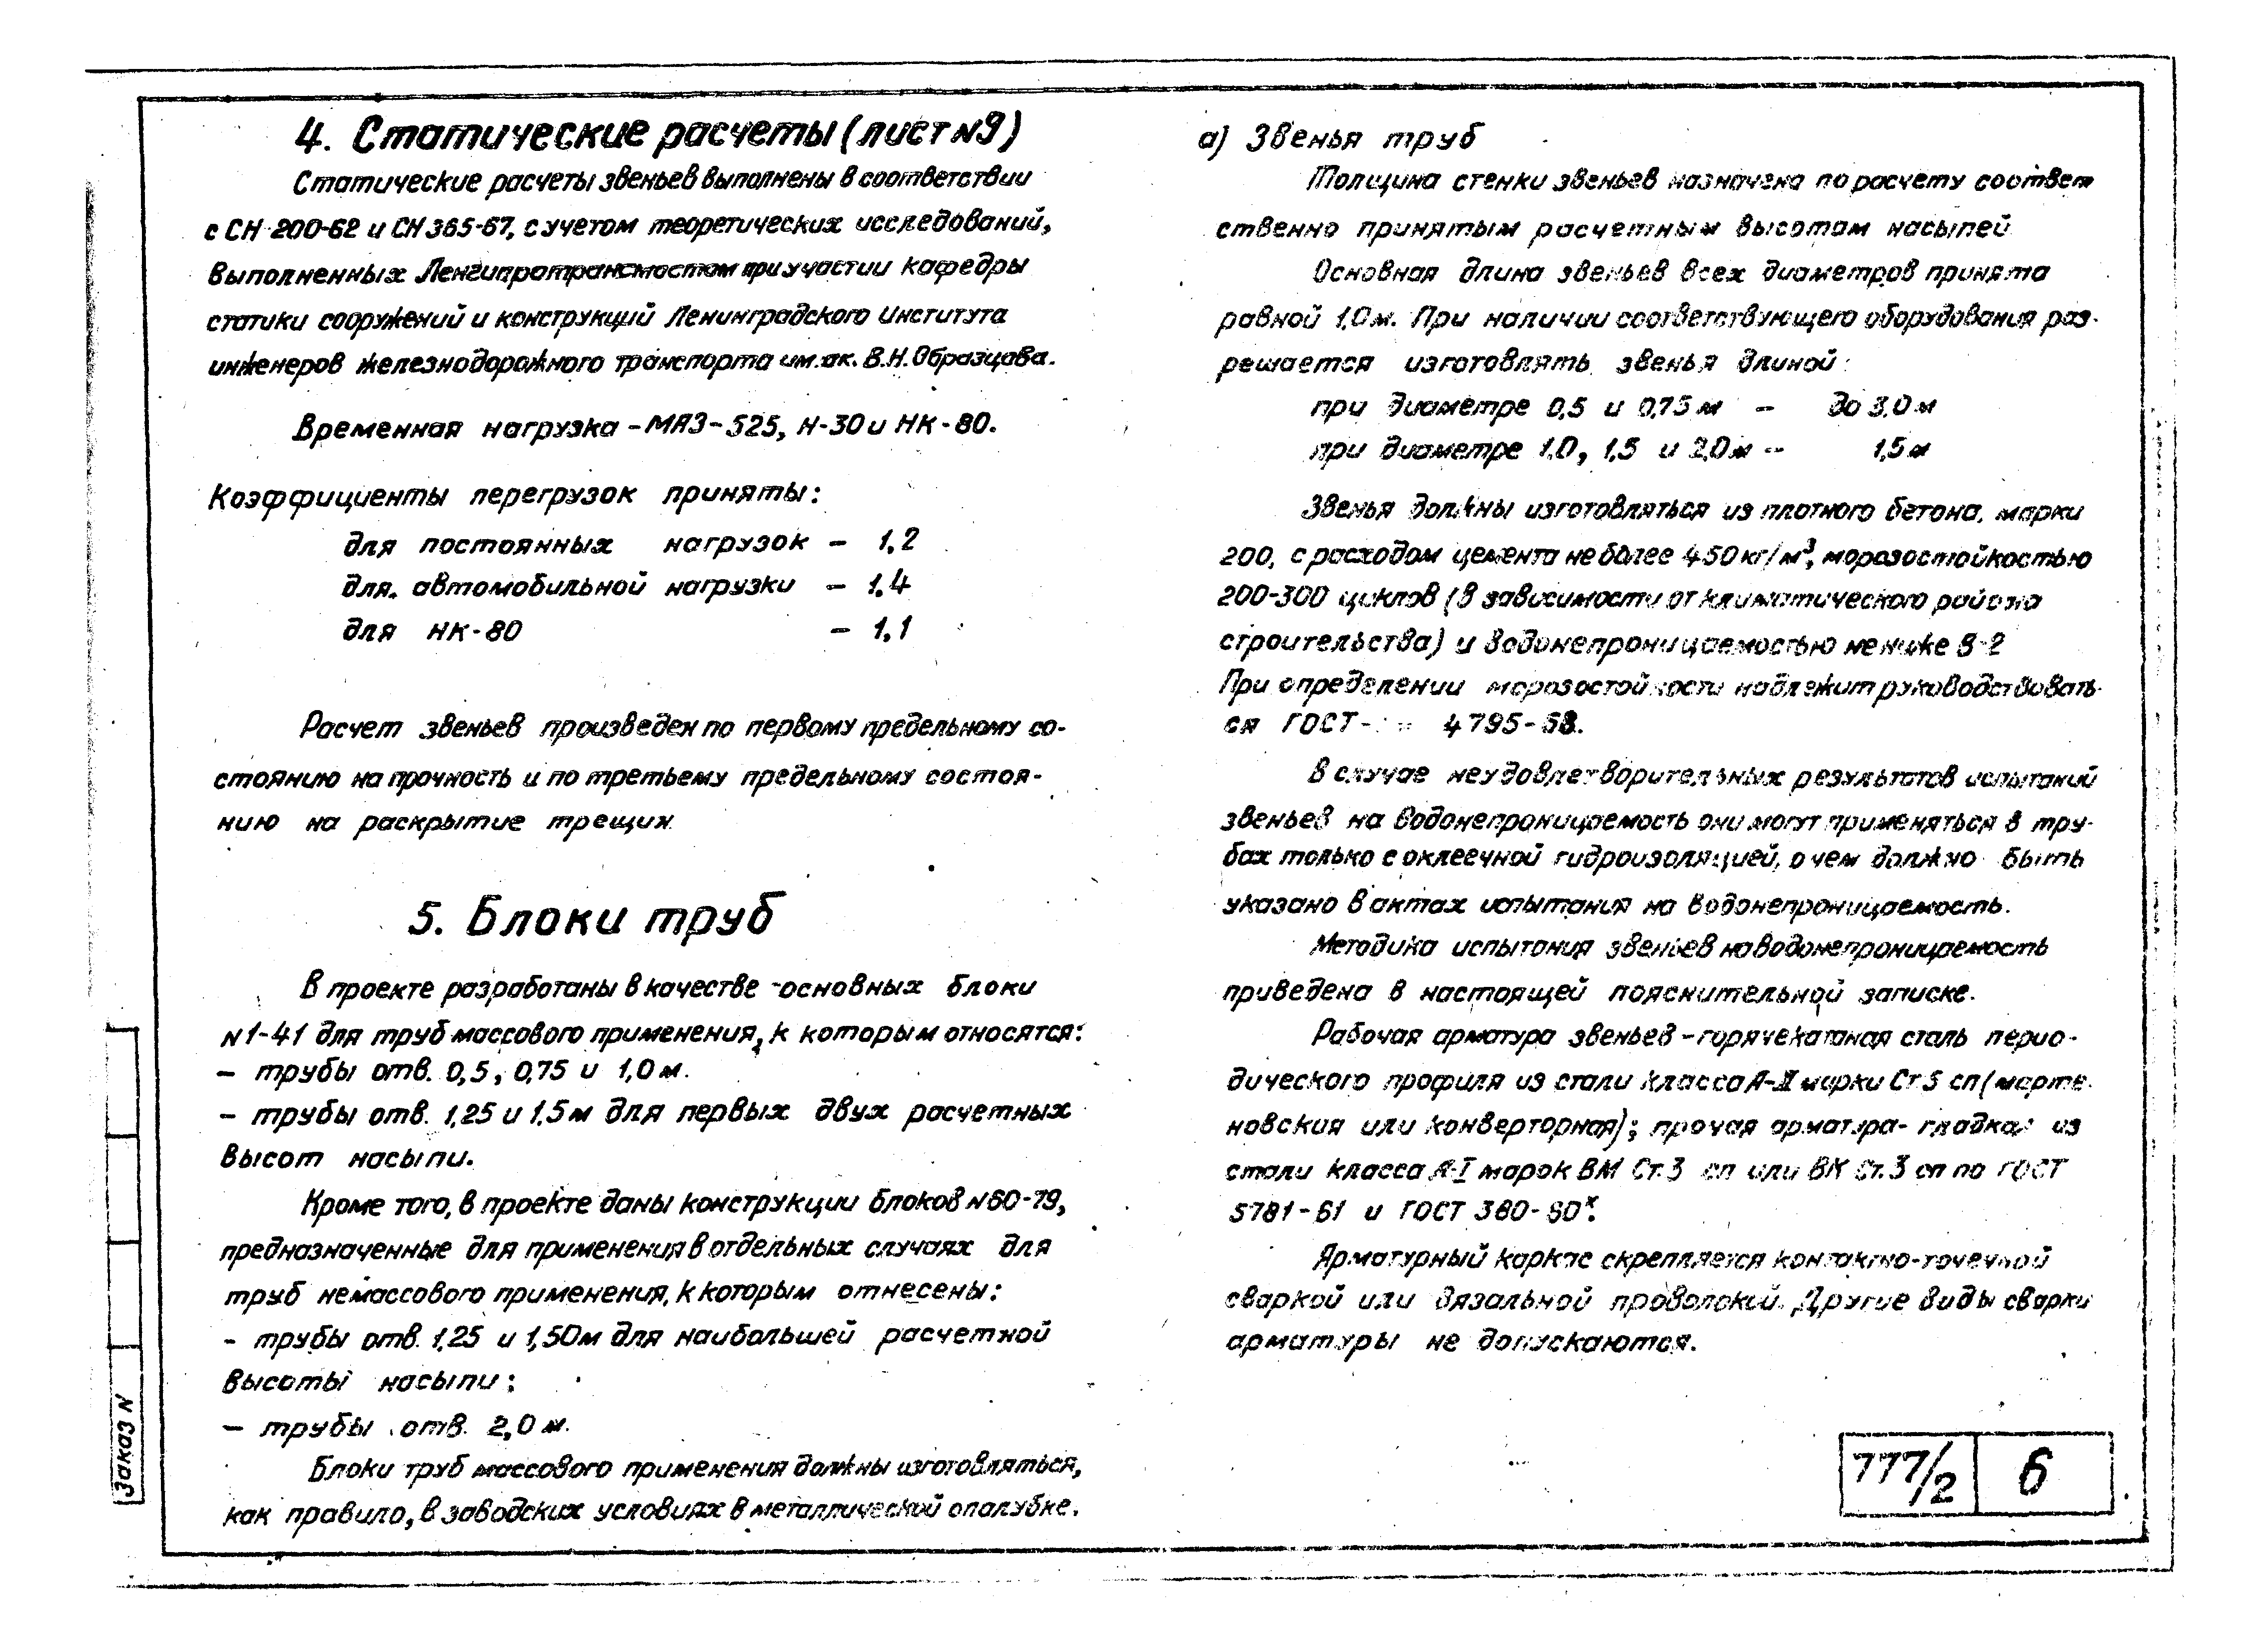 4. Статические расчеты (лист N9)
Статические расчеты звеньев выполнены в соответствии
с СН 200-62 и СН 365-67, с учетом теоретических исследований,
выполненных Ленгипротрансмостом при участии кафедры
статики сооружений и конструкций Ленинградского Института
инженеров железнодорожного транспорта им. ак. В.Н. Образцова.
Временная нагрузка - МАЗ-525, Н-30 и НК-80.
Коэффициенты перегрузок приняты:
для постоянных нагрузок - 1,2
для автомобильной нагрузки - 1,4
для НК-80 - 1,1
Расчет звеньев произведен по первому предельному со-
стоянию на прочность и по третьему предельному состоя-
нию на раскрытие трещин
5. Блоки труб
В проекте разработаны в качестве основных блоки
N 1-41 для труб массового применения, к которым относятся:
- трубы отв. 0,5, 0,75 и 1,0 м.
- трубы отв. 1,25 и 1,5 м для первых двух расчетных
высот насыпи.
Кроме того, в проекте даны конструкции блоков N 60-79,
предназначенные для применения в отдельных случаях для
труб немассового применения, к которым отнесены:
- трубы отв. 1,25 и 1,50 м для наибольшей расчетной
высоты насыпи;
- трубы отв. 2,0 м.
Блоки труб массового применения должны изготовляться,
как правило, в заводских условиях в металлической опалубке.
а) Звенья труб
Толщина стенки звеньев назначена по расчету соответ
ственно принятым расчетным высотам насыпей
Основная длина звеньев всех диаметров принята
равной 1,0 м. При наличии соответствующего оборудования раз-
решается изготовлять звенья длиной:
при диаметре 0,5 и 0,75 м - до 3,0 м
при диаметре 1,0, 1,5 и 2,0 м - 1,5 м
Звенья должны изготовляться из плотного бетона, марки
200, с расходом цемента не более 450 кг/м³, морозостойкостью
200-300 циклов (в зависимости от климатического района
строительства) и водонепроницаемостью не ниже В-2
При определении морозостойкости надлежит руководствовать-
ся ГОСТ- 4795-68.
В случае неудовлетворительных результатов испытаний
звеньев на водонепроницаемость они могут применяться в тру-
бах только с оклеечной гидроизоляцией, о чем должно быть
указано в актах испытания на водонепроницаемость.
Методика испытания звеньев на водонепроницаемость
приведена в настоящей пояснительной записке.
Рабочая арматура звеньев - горячекатаная сталь перио-
дического профиля из стали класса А-II марки Ст 5 сп (марте-
новская или конверторная); прочая арматура - гладкая из
стали класса А-I марок ВМ Ст.3 сп или ВК Ст.3 сп по ГОСТ
5781-61 и ГОСТ 380-60*.
Арматурный каркас скрепляется контактно-точечной
сваркой или вязальной проволокой. Другие виды сварки
арматуры не допускаются.
Заказ N
777/2
6